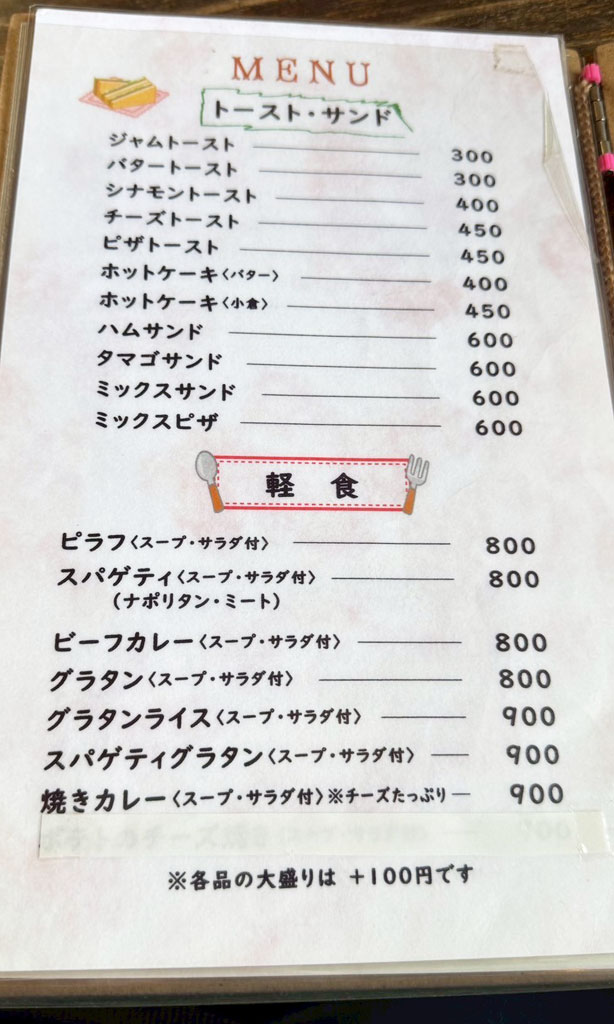 MENU
トースト・サンド
ジャムトースト 300
バタートースト 300
シナモントースト 400
チーズトースト 450
ピザトースト 450
ホットケーキ〈バター〉 400
ホットケーキ〈小倉〉 450
ハムサンド 600
タマゴサンド 600
ミックスサンド 600
ミックスピザ 600
軽 食
ピラフ〈スープ・サラダ付〉 800
スパゲティ〈スープ・サラダ付〉 800
（ナポリタン・ミート）
ビーフカレー〈スープ・サラダ付〉 800
グラタン〈スープ・サラダ付〉 800
グラタンライス〈スープ・サラダ付〉 900
スパゲティグラタン〈スープ・サラダ付〉 900
焼きカレー〈スープ・サラダ付〉※チーズたっぷり 900
ポテトのチーズ焼き〈スープ・サラダ付〉
※各品の大盛りは +100円です